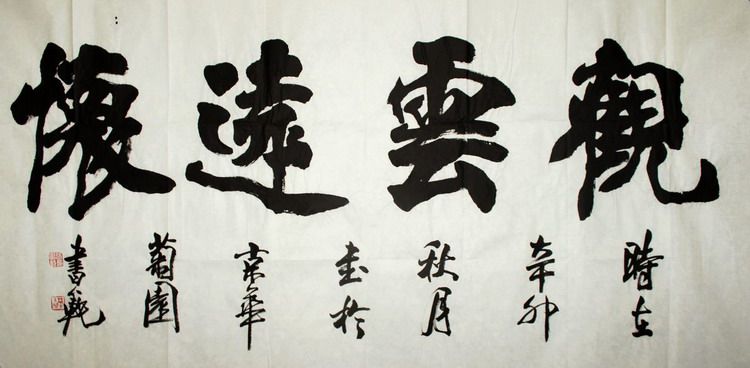 觀雲遠懷
時在
辛卯
秋月
書於
京華
園
書